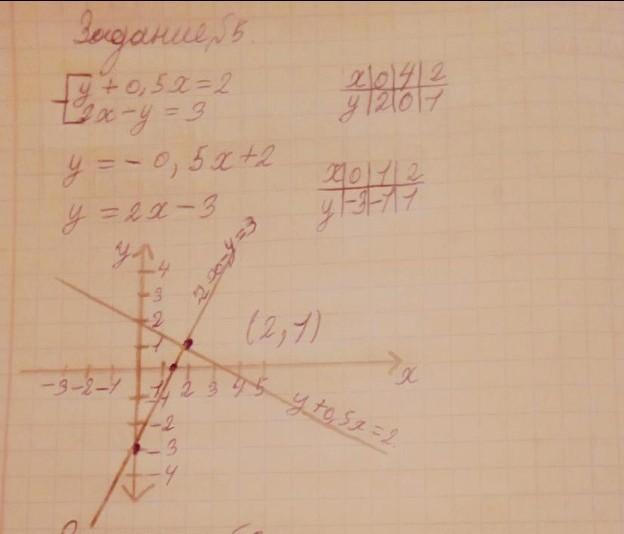 Задание,№5.
y + 0,5x = 2
2x - y = 3
x|0|4|2
y|2|0|1
y = - 0,5x+2
y = 2x - 3
x|0|1|2
y|-3|-1|1
y
2x-y=3
4
3
2
1
(2,1)
-3 -2 -1 1 2 3 4 5 x
-1
-2
-3
-4
y+0,5x=2